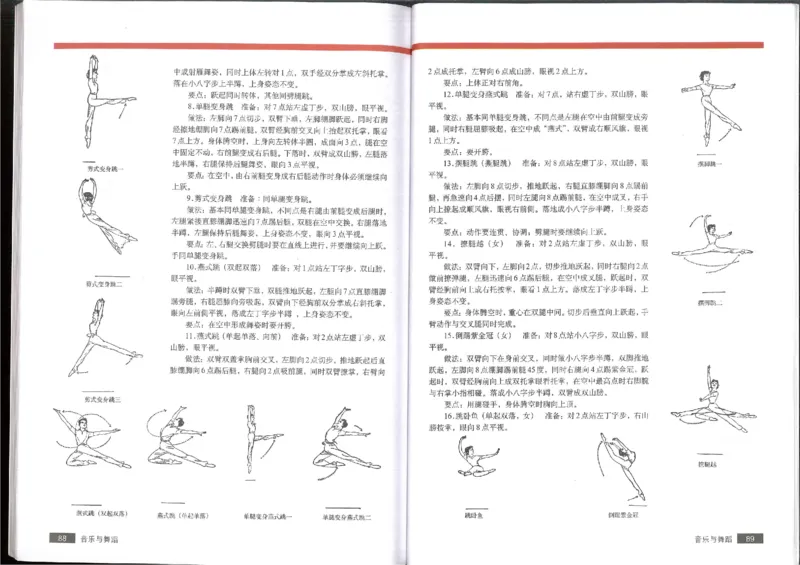 中成射雁舞姿，同时上体左转对1点，双手经双分掌成左斜托掌。
落在小八字步上半蹲，上身姿态不变。
要点：跃起同时转体，其他同劈腿跳。
8.单腿变身跳 准备：对7点站左虚丁步，双山膀，眼平视。
做法：左脚向7点切步，双臂下垂，左腿绷脚跃起，同时右脚
经擦地绷脚向7点踢前腿，双臂经胸前交叉向上抬起双托掌，眼看
7点上方。身体腾空时，上身向左转体半圈，成面向3点，腿在空
中固定不动，右前腿变成右后腿。下落时，双臂成双山膀，左腿落
地半蹲，右腿保持后腿舞姿，眼向3点平视。
要点：在空中，由右前腿变身成右后腿动作时身体必须继续向
上跃。
9.剪式变身跳 准备：同单腿变身跳。
做法：基本同单腿变身跳，不同点是右腿由前腿变成后腿时，
左腿紧接直膝绷脚迅速向7点踢后腿，双腿在空中交换。右腿落地
半蹲，左腿保持后腿舞姿，上身姿态不变，眼向3点平视。
要点：左、右腿交换剪腿时要在直线上进行，并要继续向上跃。
予同单腿变身跳。
10.燕式跳（双起双落） 准备：对1点站左丁字步，双山膀，
眼平视。
做法：半蹲时双臂下垂，双腿推地跃起，左腿向7点直膝绷脚
踢旁腿，右腿屈膝向旁吸起，双臂向下经胸前双分掌成右斜托掌，
眼向左前侧平视，落成左丁字步半蹲，上身姿态不变。
要点：在空中形成舞姿时要开胯。
11.燕式跳（单起单落、向前） 准备：对2点站左虚丁步，双
山膀，眼平视。
做法：双臂双盖掌胸前交叉，左脚向2点切步，推地跃起后直
膝绷脚向6点踢后腿，右腿向2点吸前腿，同时双臂撩掌，右臂向
剪式变身跳一
剪式变身跳二
剪式变身跳三
燕式跳（双起双落）
燕式跳（单起单落）
单腿变身燕式跳一
单腿变身燕式跳二
88 音乐与舞蹈
2点成托掌，左臂向6点成山膀，眼视2点上方。
要点：上体正对右前角。
12.单腿变身燕式跳 准备：对7点，站右虚丁步，双山膀，眼
平视。
做法：基本同单腿变身跳，不同点是左腿在空中由前腿变成旁
腿，同时右腿屈膝吸起，在空中成“燕式”，双臂成右顺风旗，眼视
1点上方。
要点：要开胯。
13.摆腿跳（撕腿跳） 准备：对8点站左虚丁步，双山膀，眼
平视。
做法：左脚向8点切步，推地跃起，右腿直膝绷脚向8点踢前
腿，再急速向4点后摆，同时左腿向8点踢前腿，在空中成叉，右手
向上撩起成顺风旗，眼视右前侧。落地成小八字步半蹲，上身姿态
不变。
要点：动作要连贯、协调；劈腿时要继续向上跃。
14．撩腿越（女） 准备：对2点站左虚丁步，双山膀，眼
平视。
做法：双臂向下，左脚向2点，切步推地跃起，同时右腿向2点
做前撩弹腿，左腿迅速向6点踢后腿，在空中成叉腿，跃起时，双
臂经胸前向上成右托按掌，眼看1点上方。落成左丁字步半蹲，上
身姿态不变。
要点：身体腾空时，重心在双腿中间，切步后垂直向上跃起，手
臂动作与交叉腿同时完成。
15.倒踢紫金冠（女） 准备：对8点站小八字步，双山膀，眼
平视。
做法：双臂向下在身前交叉，同时做小八字步半蹲，双脚推地
跃起，左脚向8点绷脚踢前腿45度，同时右腿向4点踢紫金冠，跃
起时，双臂经胸前向上成双托掌撩奔托掌，在空中最高点时右脚腕
与右掌小指相碰。落成小八字步半蹲，双臂成双山膀。
要点：用腰够手，身体腾空时胸向上顶。
16.跳卧鱼（单起双落，女） 准备：对2点站左丁字步，右山
膀按掌，眼向8点平视。
摆腿跳一
摆腿跳二
撩腿越
跳卧鱼
倒踢紫金冠
音乐与舞蹈 89